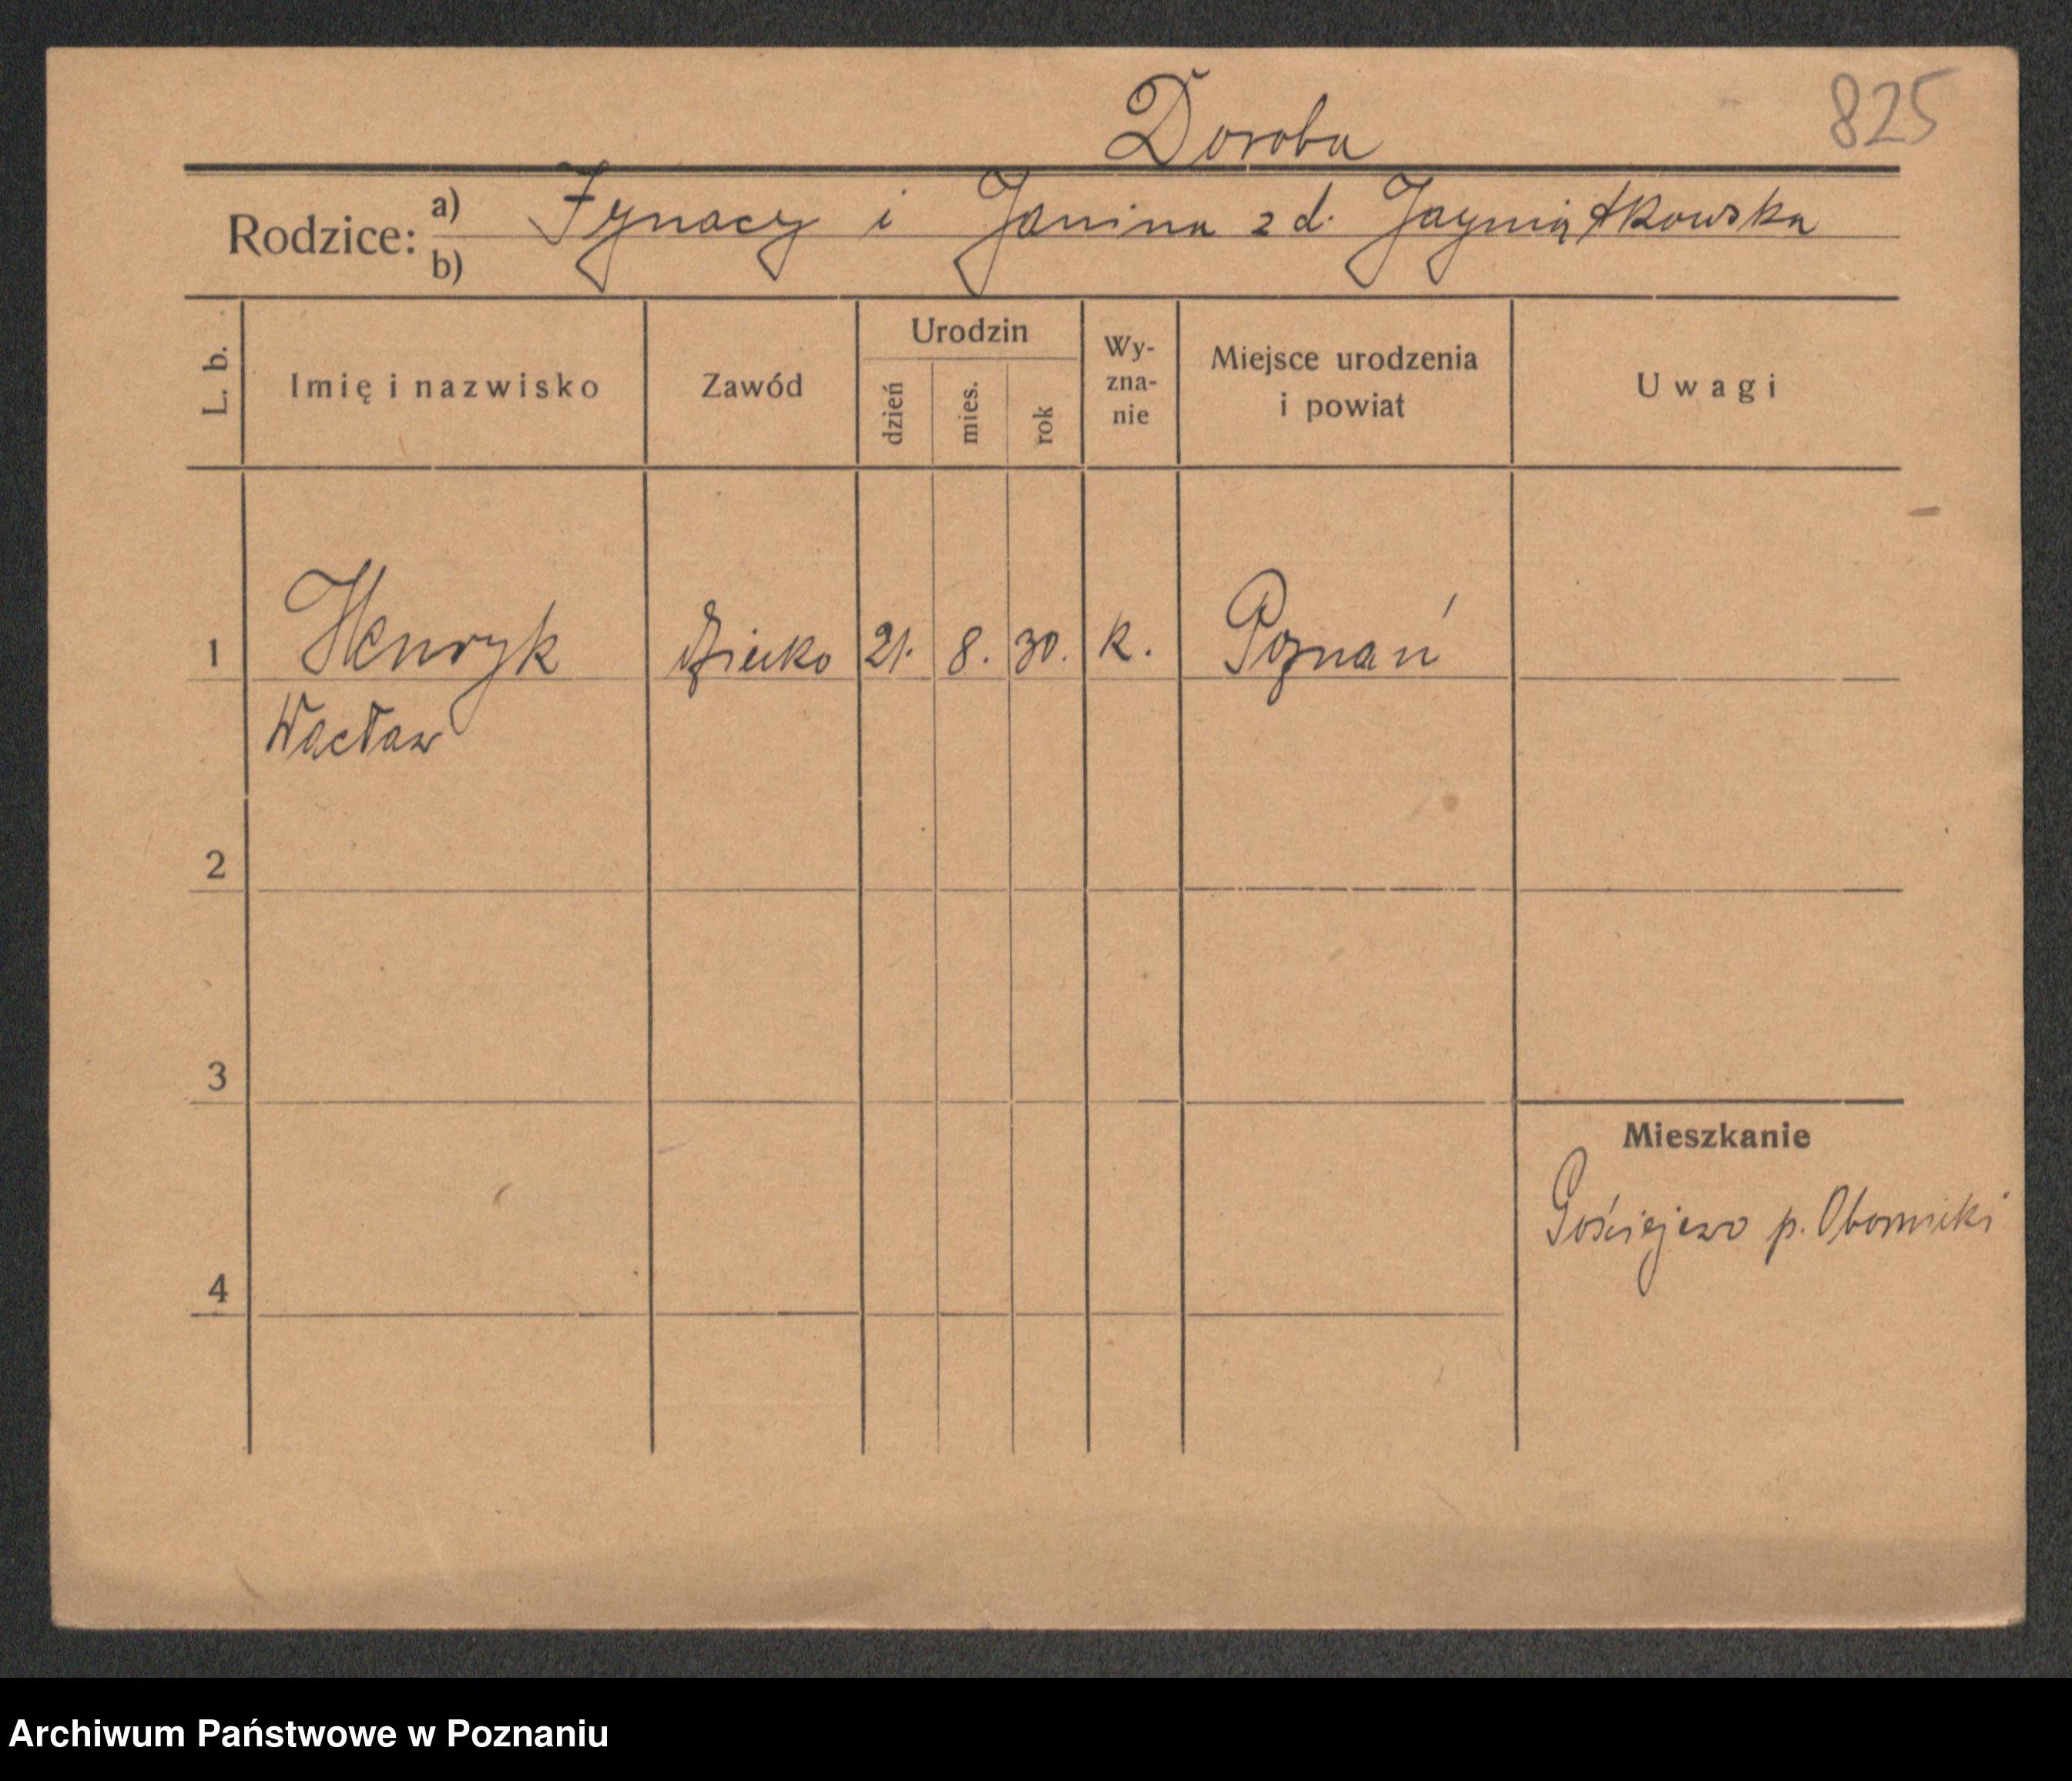 825
Doroba
Rodzice: a) Ignacy i Janina z d. Jagmiątkowska
b)
L. b. Imię i nazwisko Zawód Urodzin dzień mies. rok Wy-zna-nie Miejsce urodzenia i powiat Uwagi
1 Henryk dziecko 21. 8. 30. k. Poznań
Wacław
2
3
Mieszkanie
Gościejewo p. Oborniki
4
Archiwum Państwowe w Poznaniu